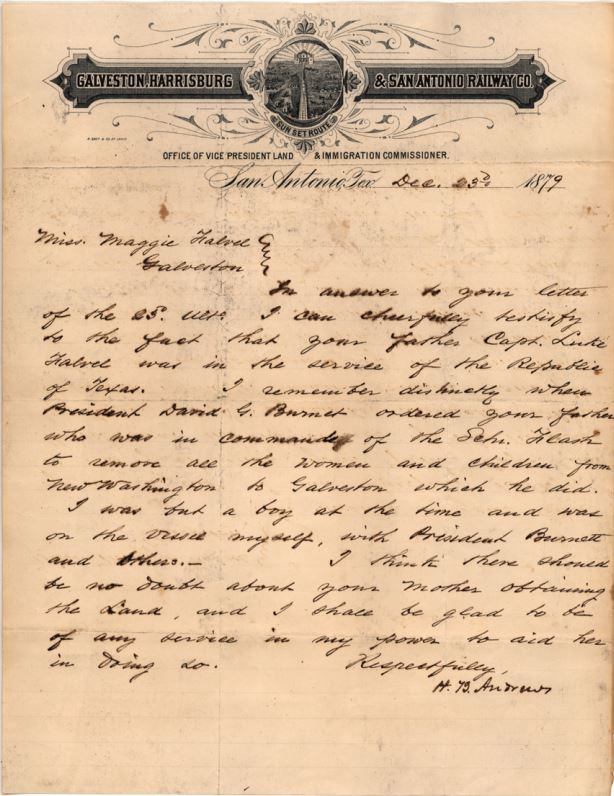 GALVESTON, HARRISBURG & SAN ANTONIO RAILWAY CO.
SUN SET ROUTE
OFFICE OF VICE PRESIDENT LAND & IMMIGRATION COMMISSIONER.
San Antonio, Tex Dec. 23d 1879
Miss. Maggie Falvel
Galveston
In answer to your letter
of the 25. ulto I can cheerfully testify
to the fact that your father Capt. Luke
Falvel was in the service of the Republic
of Texas. I remember distinctly when
President David G. Burnet ordered your father
who was in command of the Schr. Flash
to remove all the women and children from
New Washington to Galveston which he did.
I was but a boy at the time and was
on the vessel myself, with President Burnett
and others.— I think there should
be no doubt about your mother obtaining
the Land, and I shall be glad to be
of any service in my power to aid her
in doing so. Respectfully,
H. B. Andrews